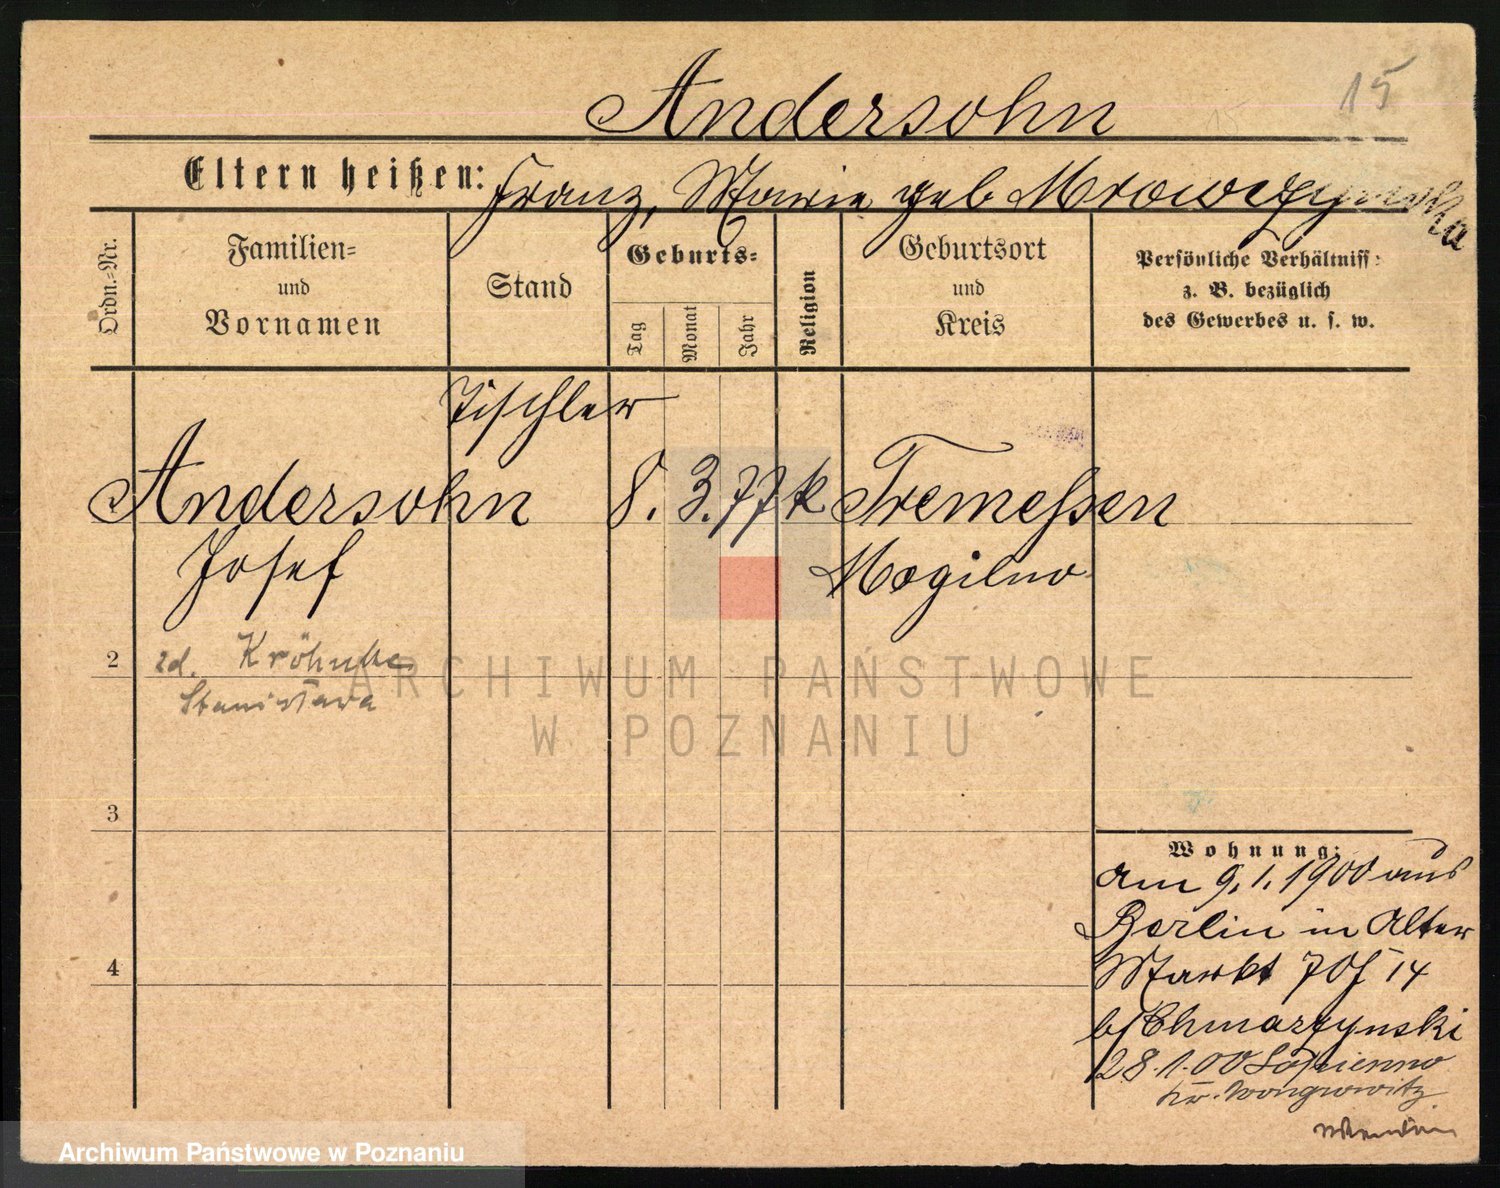 15
Andersohn
Eltern heißen: Franz, Marie geb
Ordn.-Nr.
Familien-
und
Vornamen
Stand
Geburts-
Tag
Monat
Jahr
Religion
Geburtsort
und
Kreis
Persönliche Verhältniss:
z. B. bezüglich
des Gewerbes u. s. w.
Tischler
Andersohn 8. 3. 77 k Tremessen
Josef Mogilno
2 zd. Kröhnke
Stanisława
ARCHIWUM PAŃSTWOWE
W POZNANIU
3
4
Wohnung:
am 9. 1. 1900 aus
Berlin in Alter
Markt 70 14
b/ Chmarzynski
28. 1. 00
Kr. Wongrowitz
Archiwum Państwowe w Poznaniu